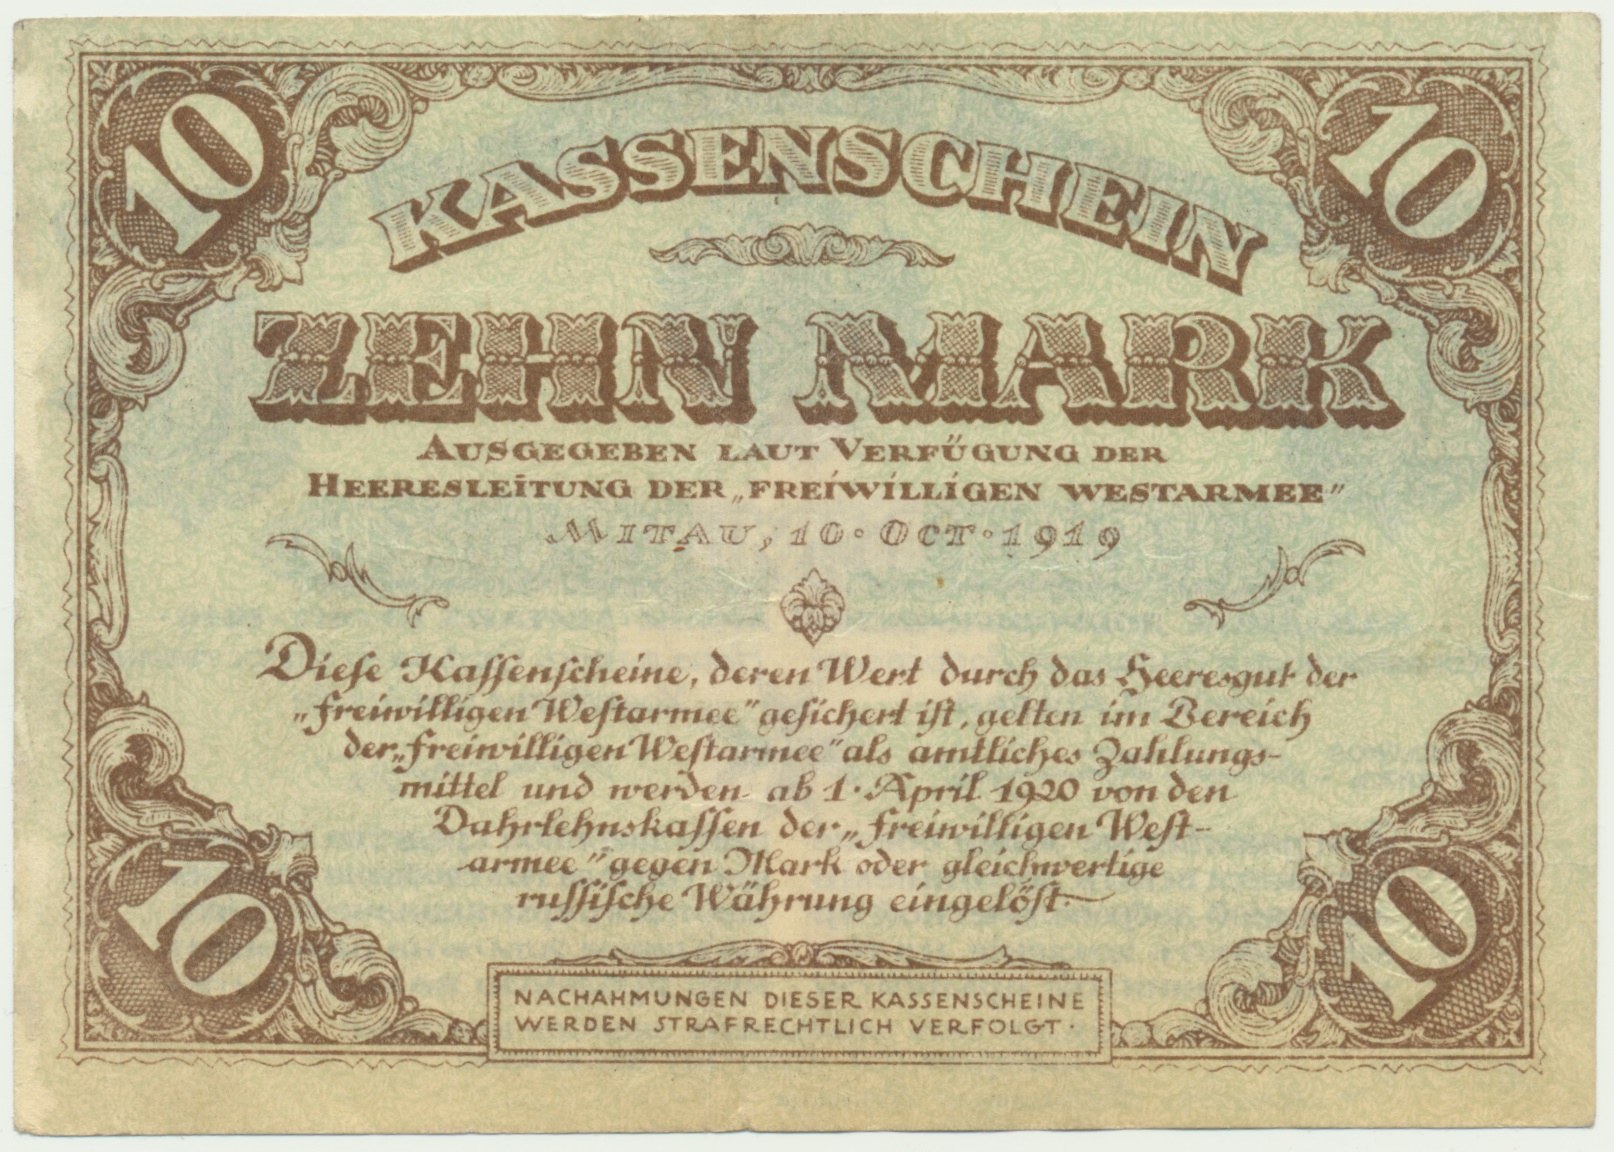 10 10
KASSENSCHEIN
ZEHN MARK
AUSGEGEBEN LAUT VERFÜGUNG DER
HEERESLEITUNG DER „FREIWILLIGEN WESTARMEE“
MITAU, 10. OCT. 1919
Dieſe Kaſſenſcheine, deren Wert durch das Heeresgut der
„Freiwilligen Weſtarmee“ geſichert iſt, gelten im Bereich
der „Freiwilligen Weſtarmee“ als amtliches Zahlungs-
mittel und werden ab 1. April 1920 von den
Dahrlehnskaſſen der „Freiwilligen Weſt-
armee“ gegen Mark oder gleichwertige
ruſſiſche Währung eingelöſt.
10 10
NACHAHMUNGEN DIESER KASSENSCHEINE
WERDEN STRAFRECHTLICH VERFOLGT.